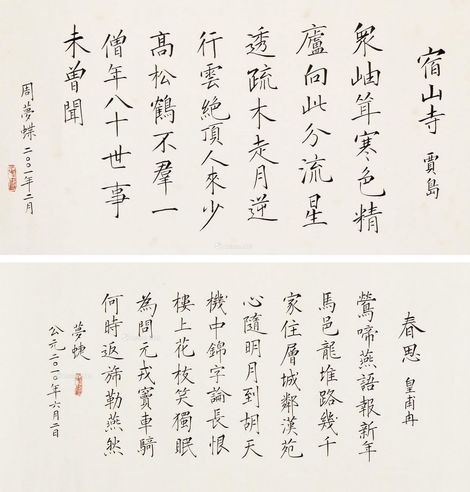 宿山寺 賈島
衆岫耸寒色精
廬向此分流星
透疏木走月逆
行雲絶頂人來少
高松鶴不羣一
僧年八十世事
未曾聞
周夢蝶二〇〇一年二月
春思 皇甫冉
鶯啼燕語報新年
馬邑龍堆路幾千
家住層城鄰漢苑
心隨明月到胡天
機中錦字論長恨
樓上花枝笑獨眠
為問元戎竇車騎
何時返旆勒燕然
夢蝶
公元二〇一〇年六月二日